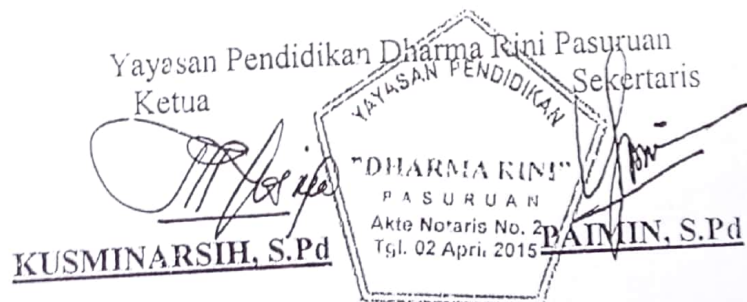 Yayasan Pendidikan Dharma Rini Pasuruan
Ketua
Sekertaris
YAYASAN PENDIDIKAN
"DHARMA RINI"
PASURUAN
Akte Notaris No. 2
Tgl. 02 April 2015
KUSMINARSIH, S.Pd
PAIMIN, S.Pd